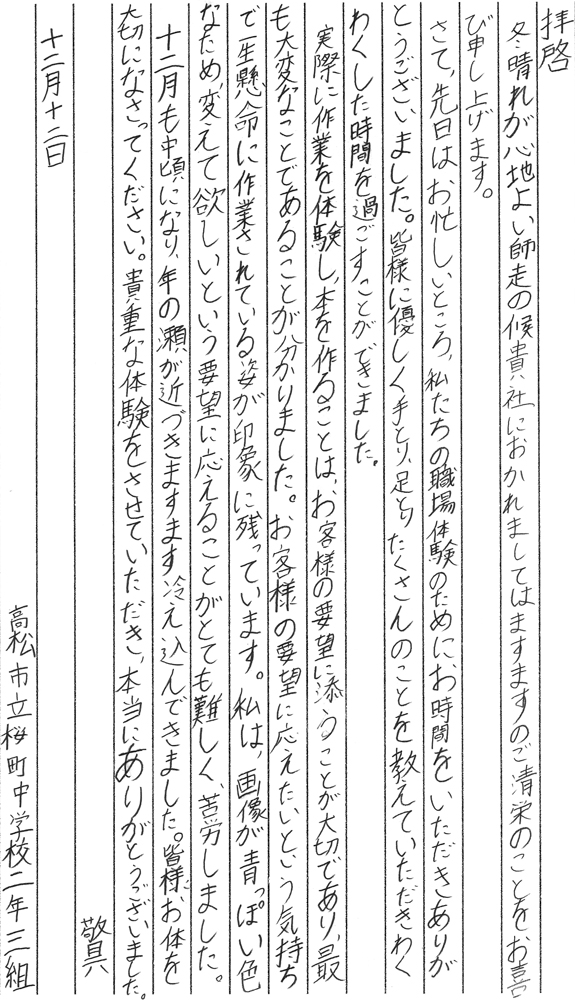 拝啓
冬晴れが心地よい師走の候貴社におかれましてはますますのご清栄のことをお喜
び申し上げます。
さて、先日はお忙しいところ、私たちの職場体験のためにお時間をいただきありが
とうございました。皆様に優しく手とり、足とりたくさんのことを教えていただきわく
わくした時間を過ごすことができました。
実際に作業を体験し、本を作ることは、お客様の要望に添うことが大切であり、最
も大変なことであることが分かりました。お客様の要望に応えたいという気持ち
で一生懸命に作業されている姿が印象に残っています。私は、画像が青っぽい色
なため、変えて欲しいという要望に応えることがとても難しく、苦労しました。
十二月も中頃になり、年の瀬が近づきますます冷え込んできました。皆様、お体を
大切になさってください。貴重な体験をさせていただき、本当にありがとうございました。
敬具
十二月十二日
高松市立桜町中学校二年三組